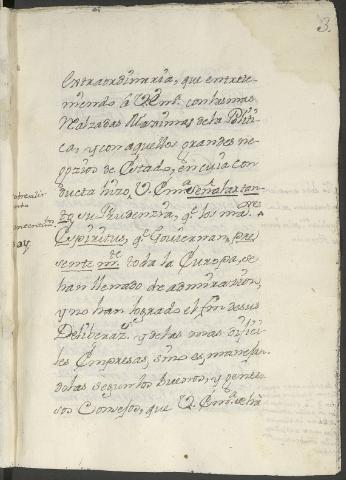 3.
extraordinaria, que entrete-
niendo à V. Em.ª con las mas
realzadas Maximas de la Politi-
ca, y con aquellos grandes ne-
gozios de Estado, en cuia con
ducta hizo V. Em.ª señalar tan-
to su Prudenzia, q.e los ma.res
Espiritus, q.e Gouiernan pre
sentem.te toda la Europa, se
han llenado de admirazion,
y no han logrado el fin de sus
Deliberaz.s y de las mas dificī
les Empresas, sino es manejan
dolas segun los buenos, y gene-
rosos Consejos, que V. Em.ª